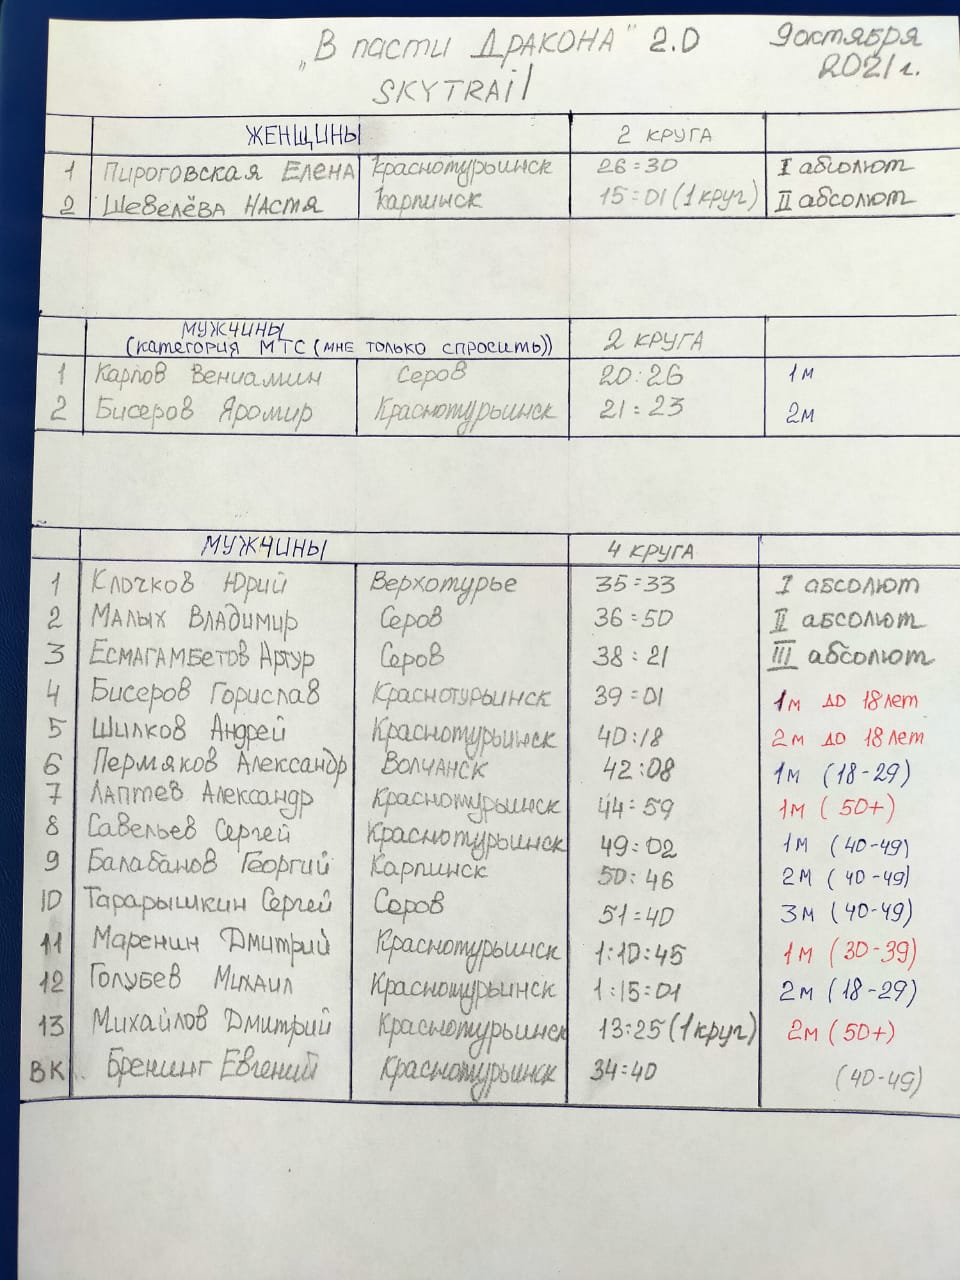 „В пасти ДРАКОНА" 2.0 9 октября 2021 г.
SKYTRAil
ЖЕНЩИНЫ 2 КРУГА
1 Пироговская Елена Краснотурьинск 26:30 I абсолют
2 Шевелёва Настя Карпинск 15:01 (1 круг) II абсолют
МУЖЧИНЫ
(категория МТС (мне только спросить)) 2 КРУГА
1 Карпов Вениамин Серов 20:26 1м
2 Бисеров Яромир Краснотурьинск 21:23 2м
МУЖЧИНЫ 4 КРУГА
1 Клочков Юрий Верхотурье 35:33 I абсолют
2 Малых Владимир Серов 36:50 II абсолют
3 Есмагамбетов Артур Серов 38:21 III абсолют
4 Бисеров Горислав Краснотурьинск 39:01 1м до 18 лет
5 Шилков Андрей Краснотурьинск 40:18 2м до 18 лет
6 Пермяков Александр Волчанск 42:08 1м (18-29)
7 Лаптев Александр Краснотурьинск 44:59 1м (50+)
8 Савельев Сергей Краснотурьинск 49:02 1м (40-49)
9 Балабанов Георгий Карпинск 50:46 2м (40-49)
10 Тарарышкин Сергей Серов 51:40 3м (40-49)
11 Маренин Дмитрий Краснотурьинск 1:10:45 1м (30-39)
12 Голубев Михаил Краснотурьинск 1:15:01 2м (18-29)
13 Михайлов Дмитрий Краснотурьинск 13:25 (1 круг) 2м (50+)
ВК Бренинг Евгений Краснотурьинск 34:40 (40-49)